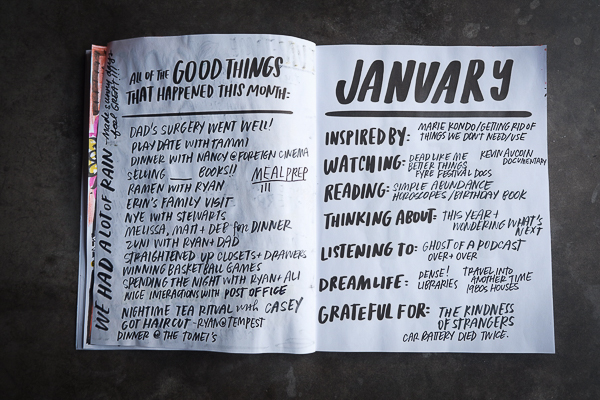 ALL OF THE GOOD THINGS
THAT HAPPENED THIS MONTH:
DAD'S SURGERY WENT WELL!
PLAYDATE WITH TAMMI
DINNER WITH NANCY @ FOREIGN CINEMA
SELLING ___ BOOKS!! MEAL PREP
RAMEN WITH RYAN !!!
ERIN'S FAMILY VISIT
NYE WITH STEWARTS
MELISSA, MATT + DEB for DINNER
ZUNI WITH RYAN + DAD
STRAIGHTENED UP CLOSETS + DRAWERS
WINNING BASKETBALL GAMES
SPENDING THE NIGHT WITH RYAN + ALI
NICE INTERACTIONS WITH POST OFFICE
NIGHTIME TEA RITUAL with CASEY
GOT HAIRCUT - RYAN @ TEMPEST
DINNER @ THE TOMEI'S
WE HAD A LOT OF RAIN - made sunny days
feel GREAT!!!
JANUARY
INSPIRED BY: MARIE KONDO/GETTING RID OF
THINGS WE DON'T NEED/USE
WATCHING: DEAD LIKE ME
BETTER THINGS
FYRE FESTIVAL DOCS
KEVIN AUCOIN
DOCUMENTARY
READING: SIMPLE ABUNDANCE
HOROSCOPES/BIRTHDAY BOOK
THINKING ABOUT: THIS YEAR +
WONDERING WHAT'S
NEXT
LISTENING TO: GHOST OF A PODCAST
OVER + OVER
DREAMLIFE: DENSE!
LIBRARIES
TRAVEL INTO
ANOTHER TIME
1980S HOUSES
GRATEFUL FOR: THE KINDNESS
OF STRANGERS
CAR BATTERY DIED TWICE.